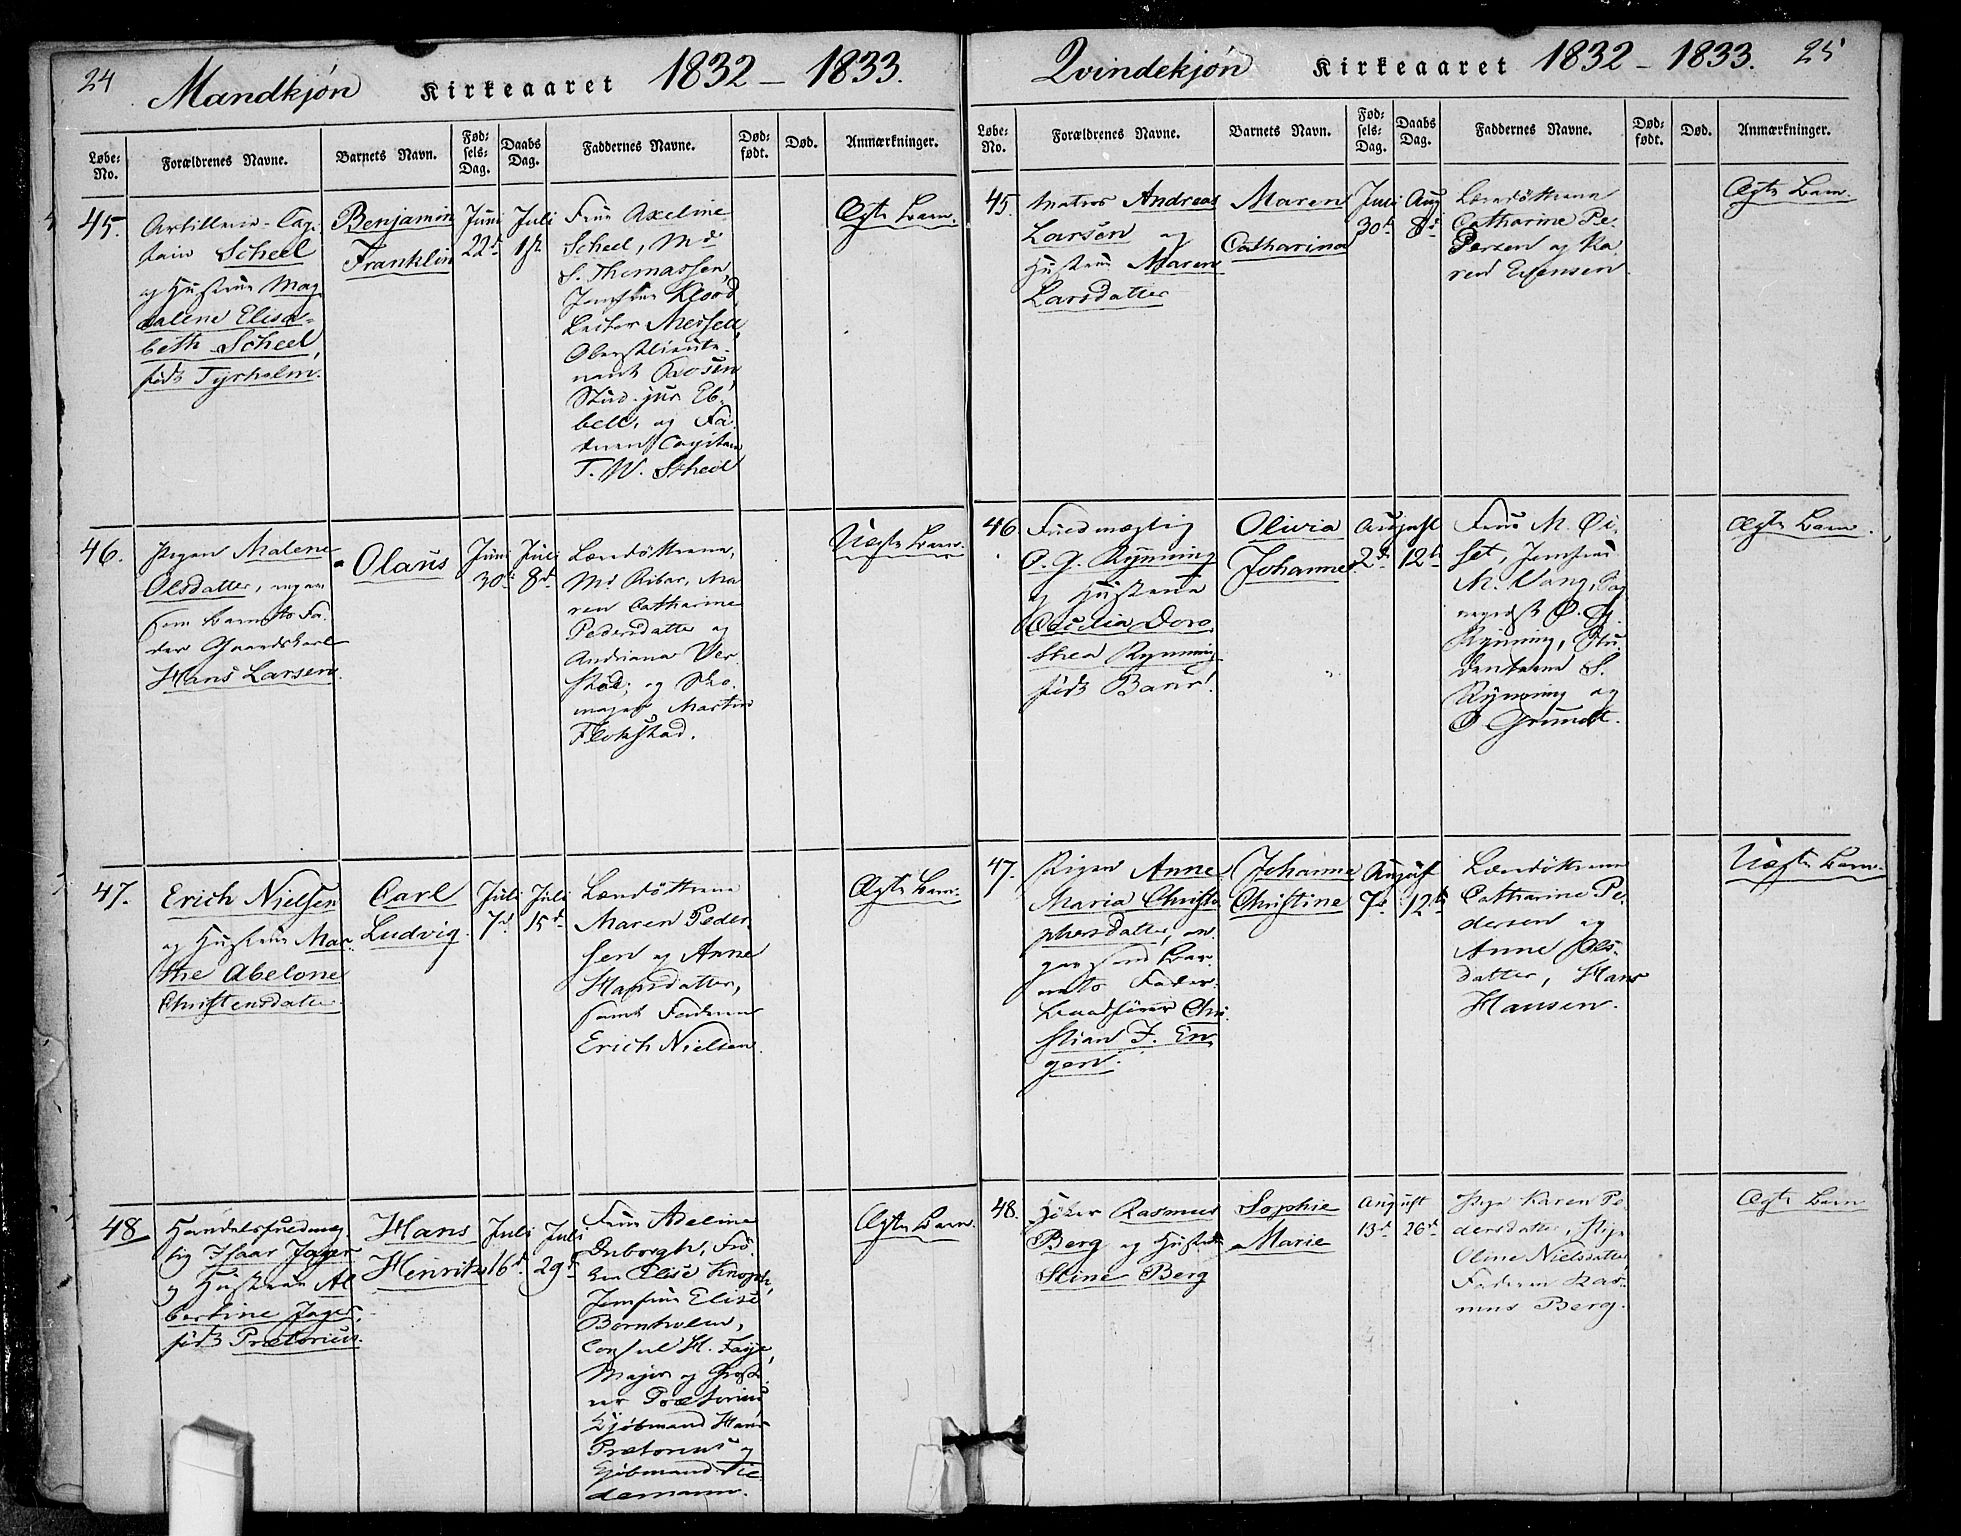 24 Mandkjøn Kirkeaaret 1832 – 1833.
Løbe-No. Forældrenes Navne. Barnets Navn. Fødsels-Dag. Daabs Dag. Faddernes Navne. Dødfødt. Død. Anmærkninger.
45.
Artillerie-Cap-
tain Scheel
og Hustrue Mag
dalene Elisa-
beth Scheel,
født Tyrholm.
Benjamin
Franklin
Juni
22d
Juli
Frue Axeline
Scheel, Md
S. Thomassen,
Jomfrue
Lector Messell,
Oberstlieute-
nant Rosen,
Stud. jur Eb-
bell, og Fa-
deren Capitain
T. W. Scheel
Ægte Barn.
46.
Pigen Malene
Olsdatter, angav
som Barnets Fa-
der Gaardskarl
Hans Larsen.
Olaus
Juni
30d
Juli
8d
Md Ribar, Ma
ren Catharine
Pedersdatter og
Andriana Ver
og Sko-
mager Martin
Flokstad.
Uægte Barn.
47.
Erich Nielsen
og Hustrue Mar
the Abelone
Christensdatter
Carl
Ludvig.
Juli
7d
Juli
15d
Maren Peder-
sen og Anne
Hansdatter,
samt Faderen
Erich Nielsen.
Ægte Barn.
48
Handelsfuldmæg
tig Isaac Jager
og Hustrue Al
bertine Jager,
født Prætorius.
Hans
Henrik
Juli
16d
Juli
29d
Frue Adeline
Frø-
ken Elise Knoph,
Jomfrue Elise
Bornholm,
Consul H. Faye,
Major og Gross
rer Prætorius
Kjøbmand Hans
Prætorius og
Kjøbmand Tie-
demann.
Ægte Barn.
Qvindekjøn Kirkeaaret 1832 – 1833. 25
Løbe-No. Forældrenes Navne. Barnets Navn. Fødsels-Dag. Daabs Dag. Faddernes Navne. Dødfødt. Død. Anmærkninger.
45.
Matros Andreas
Larsen og
Hustrue Maren
Larsdatter
Maren
Catharina
30d
Aug
8d
Catharine Pe-
dersen og Ka-
ren Evensen
Ægte Barn.
46
Fuldmægtig
O. G. Rynning
og Hustrue
Cecilia Doro
thea Rynning
født
Olivia
Johanne.
August
2d 12te
Frue M. Øi-
set, Jomfrue
M. Vang,
O. G.
Rynning, Stu-
denterne S.
Rynning og
O Grundt.
Ægte Barn.
47.
Pigen Anne
Maria Christo
phersdatter, an-
gav som Bar-
nets Fader
Christian J. En
gen.
Johanne
Christine
August
7de 12te
Catharine Pe-
dersen og
Anne Ols-
datter, Hans
Hansen.
Uægte Barn.
48.
Høker Rasmus
Berg og Hustrue
Stine Berg
Sophie
Marie
August
13d 26d
Pige Karen Pe-
dersdatter, Pige
Oline Nielsdatter,
Faderen Ras-
mus Berg.
Ægte Barn